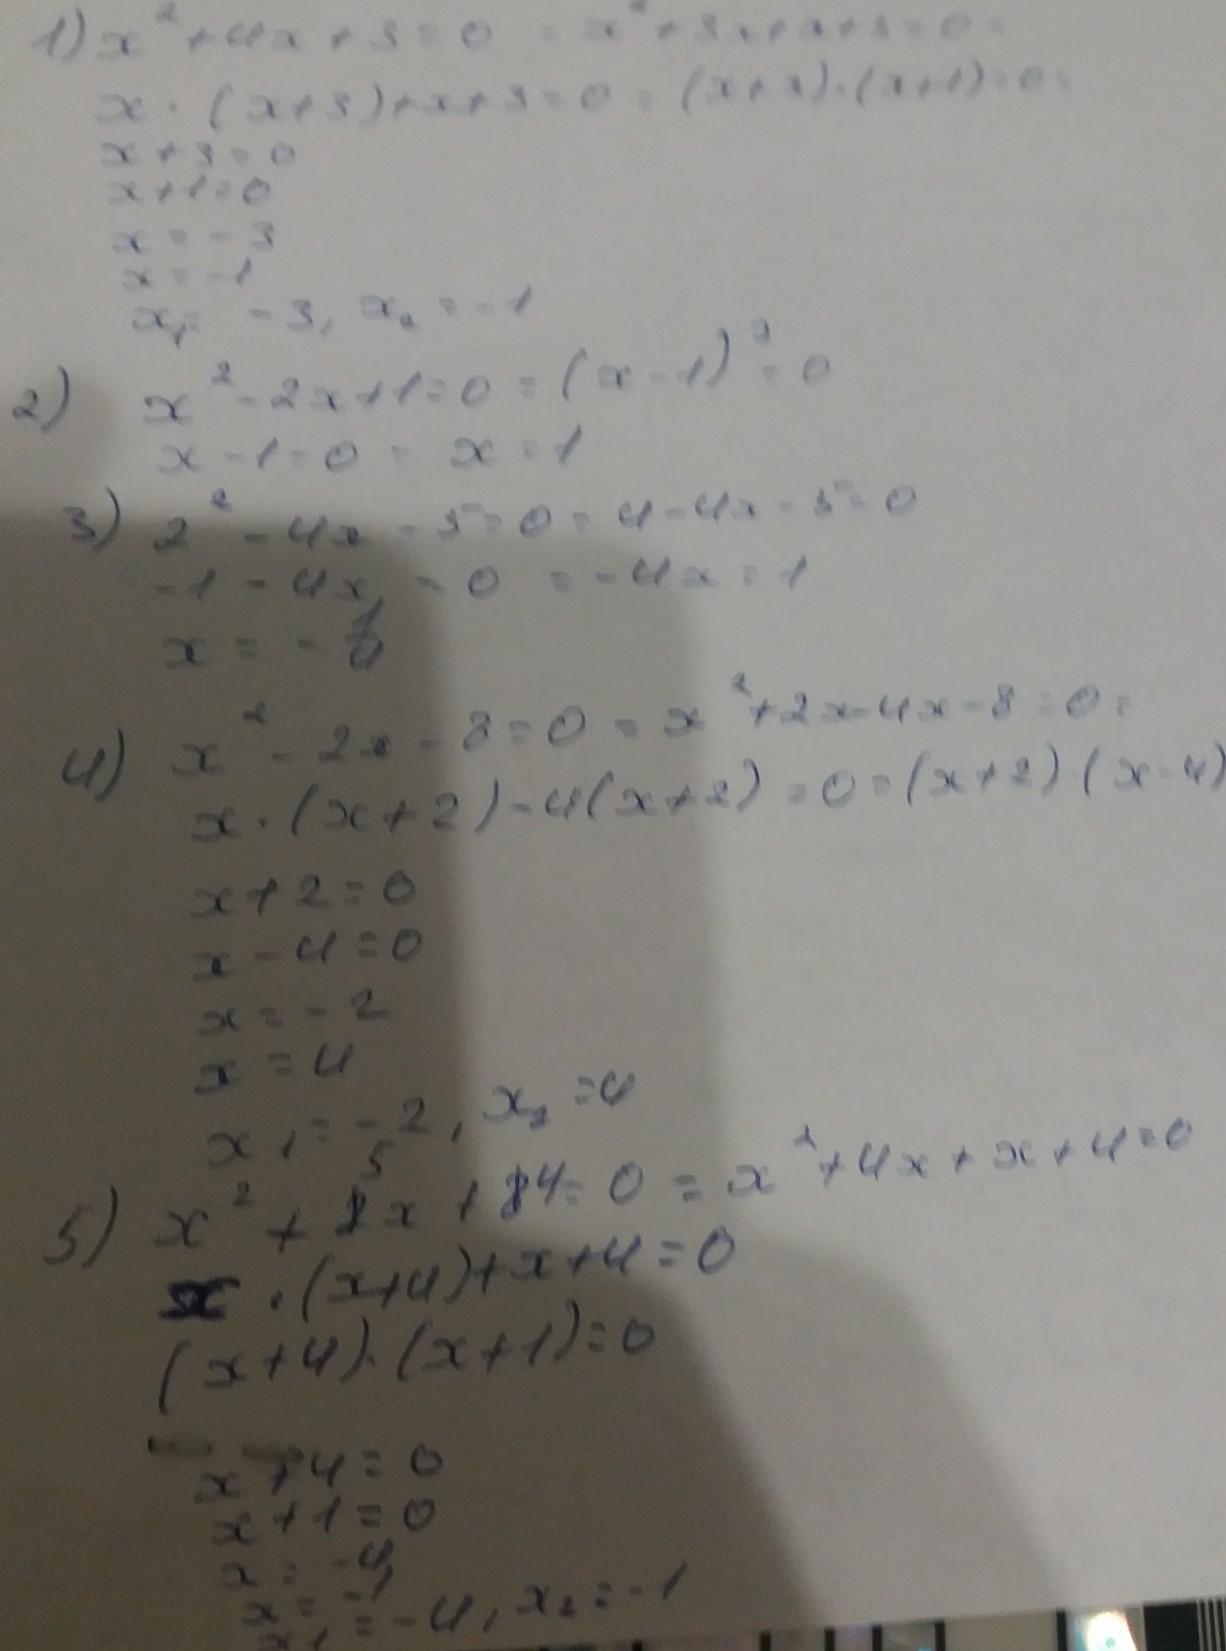 1) x² + 4x + 3 = 0 = x² + 3x + x + 3 = 0 =
x · (x + 3) + x + 3 = 0 = (x + 3) · (x + 1) = 0 =
x + 3 = 0
x + 1 = 0
x = - 3
x = - 1
x₁ = - 3, x₂ = - 1
2) x² - 2x + 1 = 0 = (x - 1)² = 0
x - 1 = 0 = x = 1
3) 2² - 4x - 5 = 0 = 4 - 4x - 5 = 0
-1 - 4x = 0 = - 4x = 1
x = - 1/4
4) x² - 2x - 8 = 0 = x² + 2x - 4x - 8 = 0 =
x · (x + 2) - 4(x + 2) = 0 = (x + 2) · (x - 4)
x + 2 = 0
x - 4 = 0
x = - 2
x = 4
x₁ = - 2, x₂ = 4
5) x² + 5x + 4 = 0 = x² + 4x + x + 4 = 0
x · (x + 4) + x + 4 = 0
(x + 4) · (x + 1) = 0
x + 4 = 0
x + 1 = 0
x = - 4
x = - 1
x₁ = - 4, x₂ = - 1